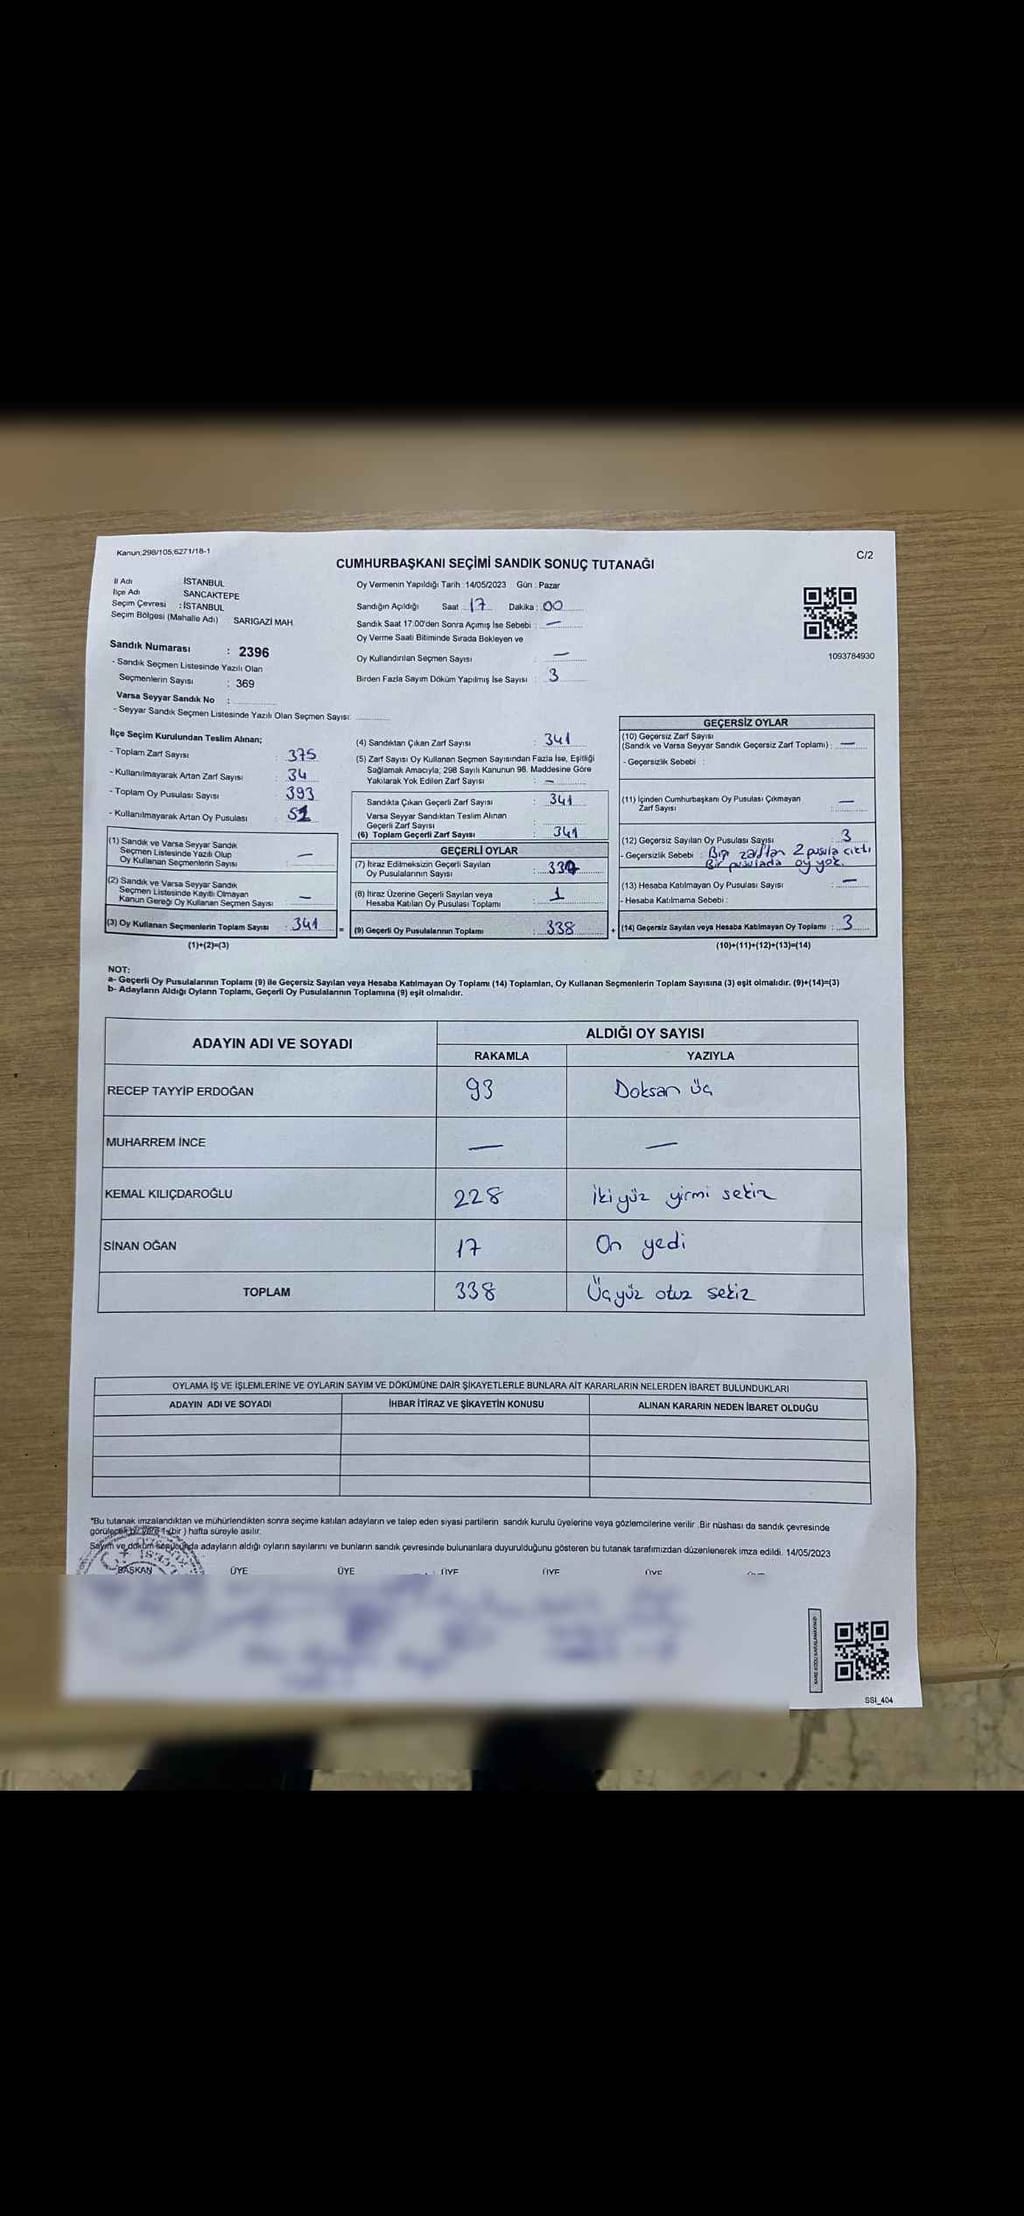 Kanun:298/105;6271/18-1
C/2
CUMHURBAŞKANI SEÇİMİ SANDIK SONUÇ TUTANAĞI
İl Adı İSTANBUL
İlçe Adı SANCAKTEPE
Seçim Çevresi : İSTANBUL
Seçim Bölgesi (Mahalle Adı) SARIGAZİ MAH.
Sandık Numarası : 2396
- Sandık Seçmen Listesinde Yazılı Olan
Seçmenlerin Sayısı : 369
Varsa Seyyar Sandık No :
- Seyyar Sandık Seçmen Listesinde Yazılı Olan Seçmen Sayısı:
Oy Vermenin Yapıldığı Tarih :14/05/2023 Gün : Pazar
Sandığın Açıldığı Saat 17 Dakika : 00
Sandık Saat 17:00'den Sonra Açımış İse Sebebi : —
Oy Verme Saati Bitiminde Sırada Bekleyen ve
Oy Kullandırılan Seçmen Sayısı : —
Birden Fazla Sayım Döküm Yapılmış İse Sayısı : 3
1093784930
İlçe Seçim Kurulundan Teslim Alınan;
- Toplam Zarf Sayısı : 375
- Kullanılmayarak Artan Zarf Sayısı : 34
- Toplam Oy Pusulası Sayısı : 393
- Kullanılmayarak Artan Oy Pusulası :
(1) Sandık ve Varsa Seyyar Sandık
Seçmen Listesinde Yazılı Olup
Oy Kullanan Seçmenlerin Sayısı —
(2) Sandık ve Varsa Seyyar Sandık
Seçmen Listesinde Kayıtlı Olmayan
Kanun Gereği Oy Kullanan Seçmen Sayısı —
(3) Oy Kullanan Seçmenlerin Toplam Sayısı : 341
(1)+(2)=(3)
(4) Sandıktan Çıkan Zarf Sayısı : 341
(5) Zarf Sayısı Oy Kullanan Seçmen Sayısından Fazla İse, Eşitliği
Sağlamak Amacıyla; 298 Sayılı Kanunun 98. Maddesine Göre
Yakılarak Yok Edilen Zarf Sayısı : —
Sandıkta Çıkan Geçerli Zarf Sayısı : 341
Varsa Seyyar Sandıktan Teslim Alınan
Geçerli Zarf Sayısı :
(6) Toplam Geçerli Zarf Sayısı : 341
GEÇERLİ OYLAR
(7) İtiraz Edilmeksizin Geçerli Sayılan
Oy Pusulalarının Sayısı :
(8) İtiraz Üzerine Geçerli Sayılan veya
Hesaba Katılan Oy Pusulası Toplamı : 1
= (9) Geçerli Oy Pusulalarının Toplamı : 338
GEÇERSİZ OYLAR
(10) Geçersiz Zarf Sayısı
(Sandık ve Varsa Seyyar Sandık Geçersiz Zarf Toplamı) : —
- Geçersizlik Sebebi :
(11) İçinden Cumhurbaşkanı Oy Pusulası Çıkmayan
Zarf Sayısı : —
(12) Geçersiz Sayılan Oy Pusulası Sayısı : 3
- Geçersizlik Sebebi : Bir zarftan 2 pusula çıktı
Bir pusulada oy yok.
(13) Hesaba Katılmayan Oy Pusulası Sayısı : —
- Hesaba Katılmama Sebebi :
+ (14) Geçersiz Sayılan veya Hesaba Katılmayan Oy Toplamı : 3
(10)+(11)+(12)+(13)=(14)
NOT:
a- Geçerli Oy Pusulalarının Toplamı (9) ile Geçersiz Sayılan veya Hesaba Katılmayan Oy Toplamı (14) Toplamları, Oy Kullanan Seçmenlerin Toplam Sayısına (3) eşit olmalıdır. (9)+(14)=(3)
b- Adayların Aldığı Oyların Toplamı, Geçerli Oy Pusulalarının Toplamına (9) eşit olmalıdır.
ADAYIN ADI VE SOYADI
ALDIĞI OY SAYISI
RAKAMLA YAZIYLA
RECEP TAYYİP ERDOĞAN 93 Doksan üç
MUHARREM İNCE — —
KEMAL KILIÇDAROĞLU 228 İkiyüz yirmi sekiz
SİNAN OĞAN 17 On yedi
TOPLAM 338 Üçyüz otuz sekiz
OYLAMA İŞ VE İŞLEMLERİNE VE OYLARIN SAYIM VE DÖKÜMÜNE DAİR ŞİKAYETLERLE BUNLARA AİT KARARLARIN NELERDEN İBARET BULUNDUKLARI
ADAYIN ADI VE SOYADI İHBAR İTİRAZ VE ŞİKAYETİN KONUSU ALINAN KARARIN NEDEN İBARET OLDUĞU
"Bu tutanak imzalandıktan ve mühürlendikten sonra seçime katılan adayların ve talep eden siyasi partilerin sandık kurulu üyelerine veya gözlemcilerine verilir .Bir nüshası da sandık çevresinde
görülecek bir yere 1 (bir ) hafta süreyle asılır.
Sayım ve döküm sonucunda adayların aldığı oyların sayılarını ve bunların sandık çevresinde bulunanlara duyurulduğunu gösteren bu tutanak tarafımızdan düzenlenerek imza edildi. 14/05/2023
BAŞKAN ÜYE ÜYE ÜYE ÜYE ÜYE
SSI_404